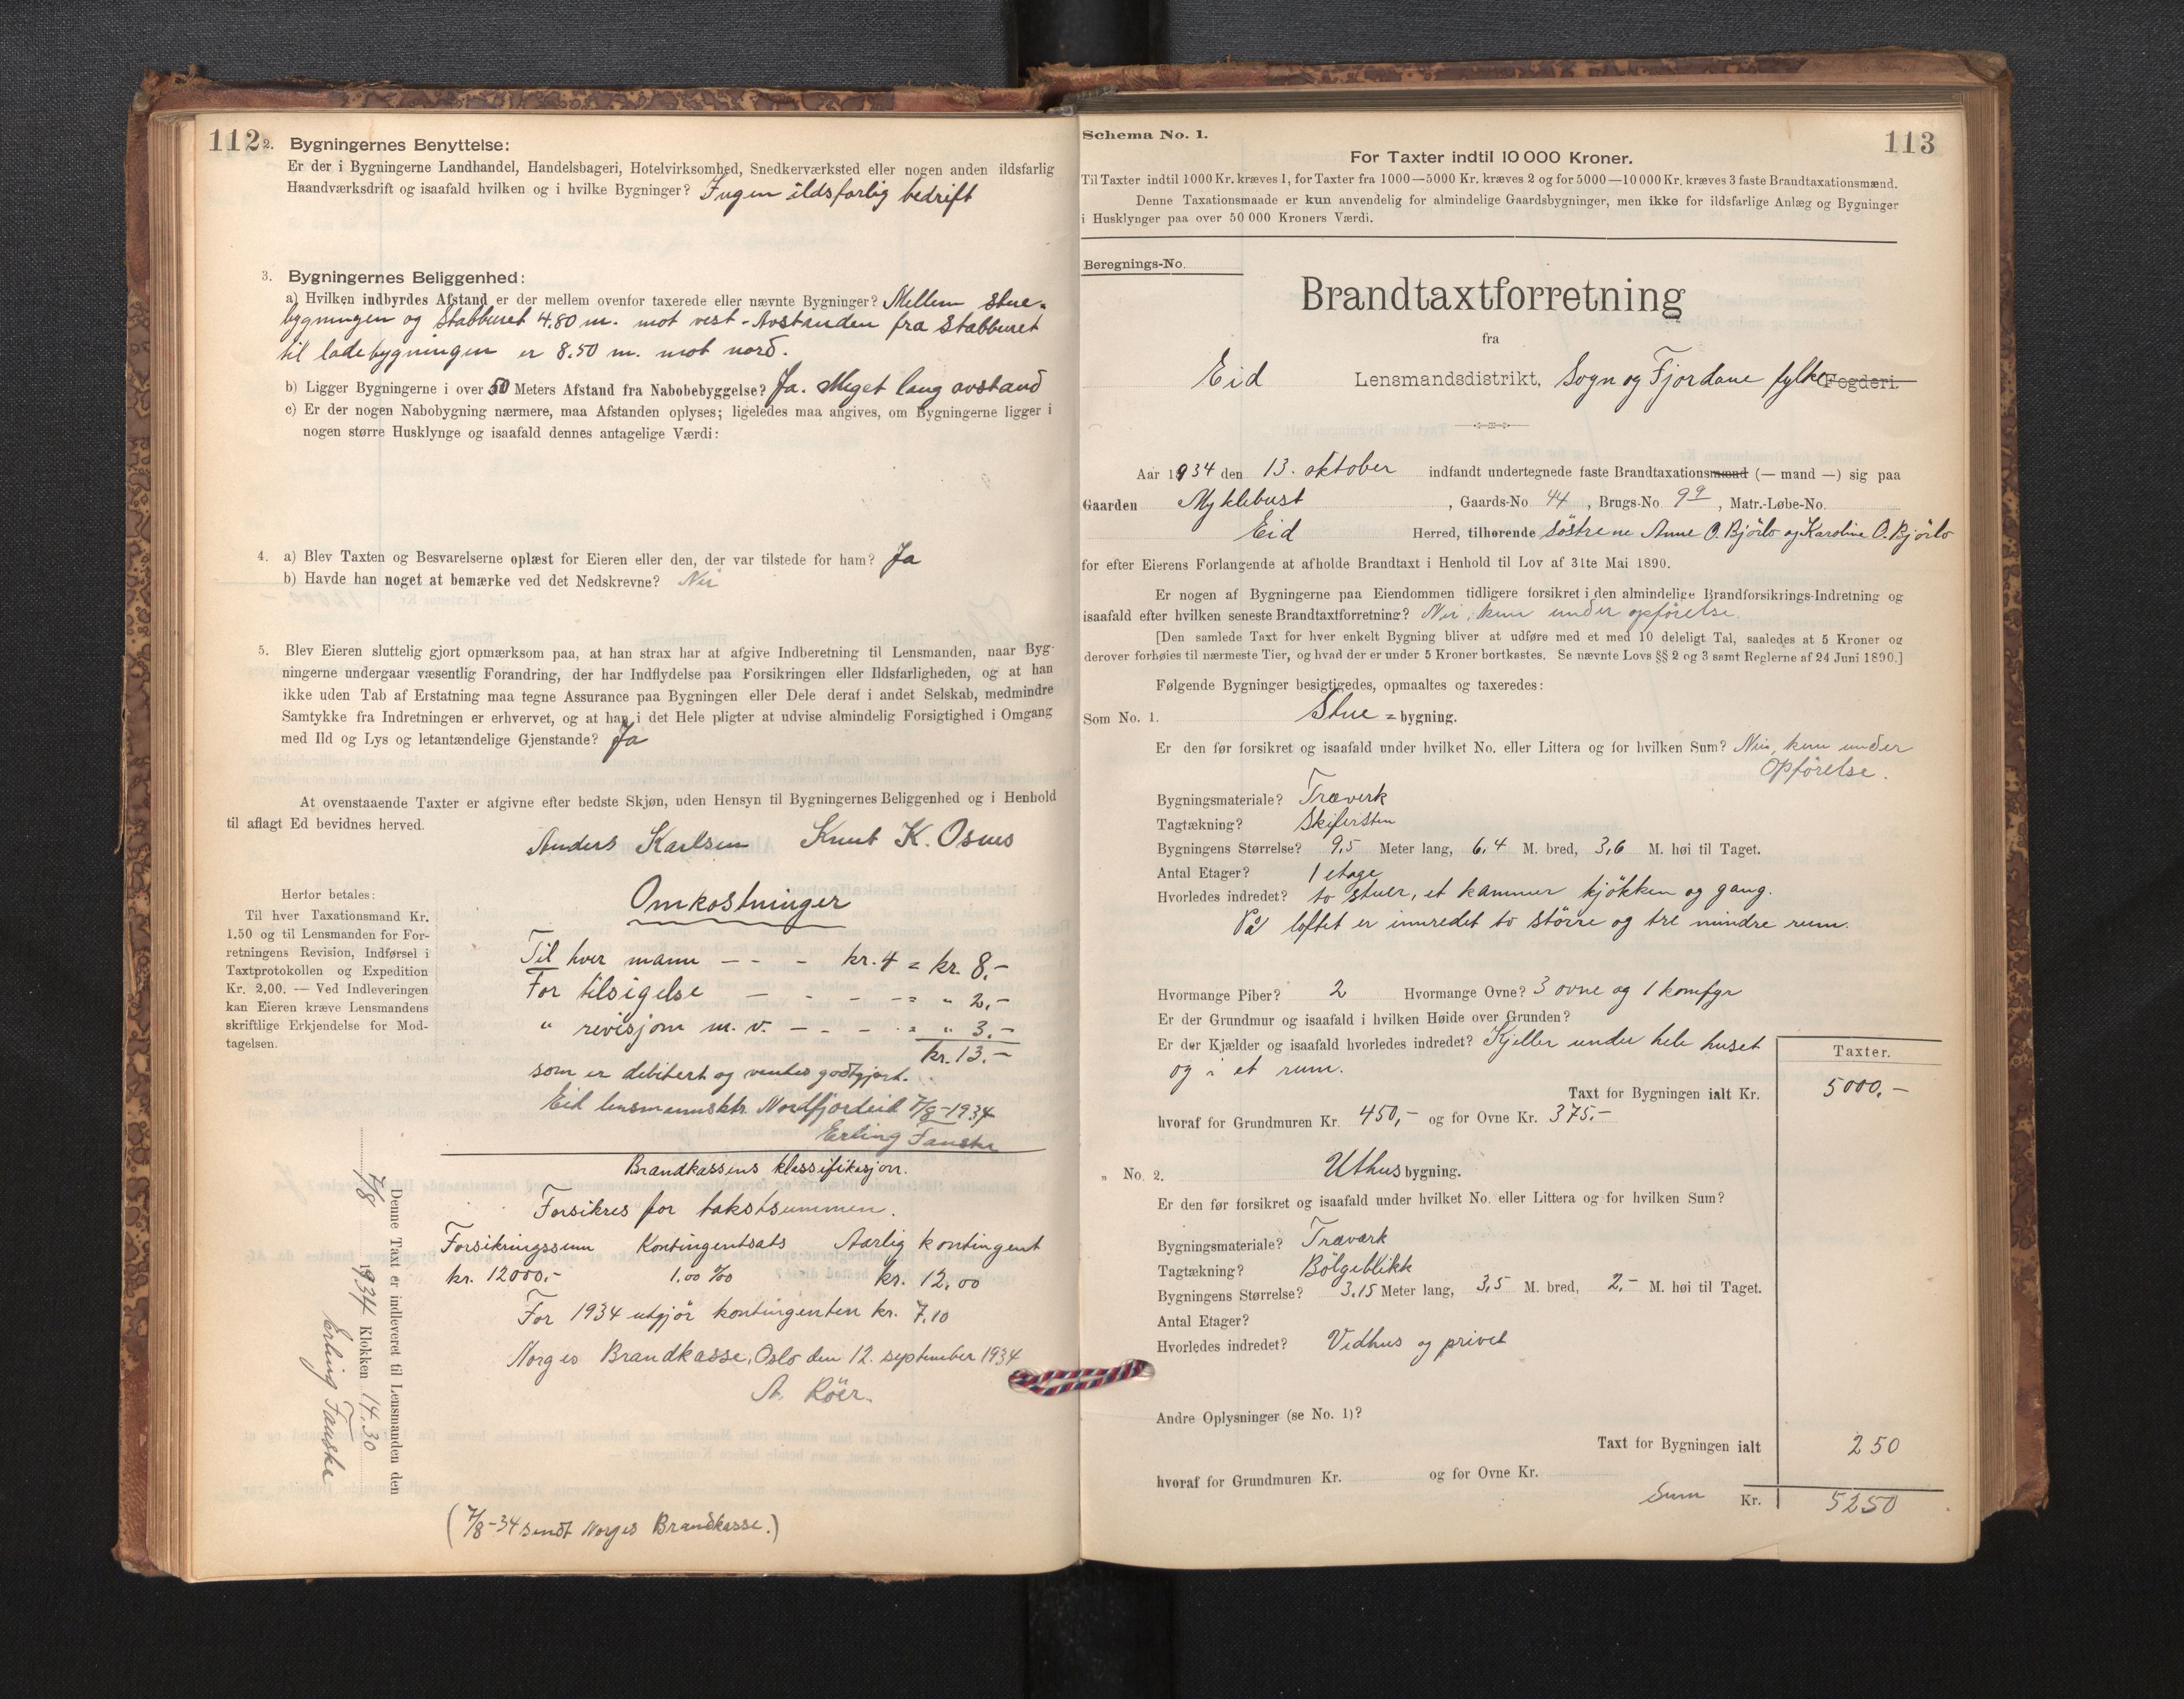 112
2. Bygningernes Benyttelse:
Er der i Bygningerne Landhandel, Handelsbageri, Hotelvirksomhed, Snedkerværksted eller nogen anden ildsfarlig
Haandværksdrift og isaafald hvilken og i hvilke Bygninger? Ingen ildsfarlig bedrift
3. Bygningernes Beliggenhed:
a) Hvilken indbyrdes Afstand er der mellem ovenfor taxerede eller nævnte Bygninger? Mellem stue-
bygningen og Stabburet 4.80 m. mot vest - Avstanden fra Stabburet
til ladebygningen er 8.50 m. mot nord.
b) Ligger Bygningerne i over 50 Meters Afstand fra Nabobebyggelse? Ja. Meget lang avstand
c) Er der nogen Nabobygning nærmere, maa Afstanden oplyses; ligeledes maa angives, om Bygningerne ligger i
nogen større Husklynge og isaafald dennes antagelige Værdi:
4. a) Blev Taxten og Besvarelserne oplæst for Eieren eller den, der var tilstede for ham? Ja
b) Havde han noget at bemærke ved det Nedskrevne? Nei
5. Blev Eieren sluttelig gjort opmærksom paa, at han strax har at afgive Indberetning til Lensmanden, naar Byg-
ningerne undergaar væsentlig Forandring, der har Indflydelse paa Forsikringen eller Ildsfarligheden, og at han
ikke uden Tab af Erstatning maa tegne Assurance paa Bygningen eller Dele deraf i andet Selskab, medmindre
Samtykke fra Indretningen er erhvervet, og at han i det Hele pligter at udvise almindelig Forsigtighed i Omgang
med Ild og Lys og letantændelige Gjenstande? Ja
At ovenstaaende Taxter er afgivne efter bedste Skjøn, uden Hensyn til Bygningernes Beliggenhed og i Henhold
til aflagt Ed bevidnes herved.
Anders Karlsen Knut K. Osnes
Herfor betales:
Til hver Taxationsmand Kr.
1.50 og til Lensmanden for For-
retningens Revision, Indførsel i
Taxtprotokollen og Expedition
Kr. 2,00. — Ved Indleveringen
kan Eieren kræve Lensmandens
skriftlige Erkjendelse for Mod-
tagelsen.
Omkostninger
Til hver mann - - - kr. 4 = kr. 8.-
For tilsigelse - - - - = " 2,-
" revisjon m. v. - - - = " 3.-
kr. 13.-
som er debitert og ventes godtgjort.
Eid lensmannsktr. Nordfjordeid 7/8-1934
Erling Fauske
Brandkassens klassifikasjon.
Forsikres for takstsummen.
Forsikringssum Kontingentsats Aarlig kontingent
kr. 12000.- 1.00 ‰ kr. 12,00
For 1934 utgjör kontingenten kr. 7,10
Norges Brandkasse, Oslo den 12. september 1934
A. Röer.
Denne Taxt er indleveret til Lensmanden den
7/8 1934 Klokken 14.30
Erling Fauske
(7/8-34 sendt Norges Brandkasse.)
113
Schema No. 1.
For Taxter indtil 10 000 Kroner.
Til Taxter indtil 1000 Kr. kræves 1, for Taxter fra 1000—5000 Kr. kræves 2 og for 5000—10 000 Kr. kræves 3 faste Brandtaxationsmænd.
Denne Taxationsmaade er kun anvendelig for almindelige Gaardsbygninger, men ikke for ildsfarlige Anlæg og Bygninger
i Husklynger paa over 50 000 Kroners Værdi.
Beregnings-No.
Brandtaxtforretning
fra
Eid Lensmandsdistrikt, Sogn og Fjordane fylke Fogderi.
Aar 1934 den 13. oktober indfandt undertegnede faste Brandtaxationsmænd (— mand —) sig paa
Gaarden Myklebust, Gaards-No 44, Brugs-No 99, Matr.-Løbe-No.
Eid Herred, tilhørende söstrene Anne O. Bjørlo og Karoline O. Bjørlo
for efter Eierens Forlangende at afholde Brandtaxt i Henhold til Lov af 31te Mai 1890.
Er nogen af Bygningerne paa Eiendommen tidligere forsikret i den almindelige Brandforsikrings-Indretning og
isaafald efter hvilken seneste Brandtaxtforretning? Nei, kun under opförelse.
[Den samlede Taxt for hver enkelt Bygning bliver at udføre med et med 10 deleligt Tal, saaledes at 5 Kroner og
derover forhøies til nærmeste Tier, og hvad der er under 5 Kroner bortkastes. Se nævnte Lovs §§ 2 og 3 samt Reglerne af 24 Juni 1890.]
Følgende Bygninger besigtigedes, opmaaltes og taxeredes:
Som No. 1. Stue = bygning.
Er den før forsikret og isaafald under hvilket No. eller Littera og for hvilken Sum? Nei, kun under
Opförelse.
Bygningsmateriale? Træverk
Tagtækning? Skifersten
Bygningens Størrelse? 9,5 Meter lang, 6,4 M. bred, 3,6 M. høi til Taget.
Antal Etager? 1 etage
Hvorledes indredet? to stuer, et kammer kjökken og gang.
På loftet er innredet to större og tre mindre rum.
Hvormange Piber? 2 Hvormange Ovne? 3 ovne og 1 komfyr
Er der Grundmur og isaafald i hvilken Høide over Grunden?
Er der Kjælder og isaafald hvorledes indredet? Kjeller under hele huset
og i et rum.
Taxter.
Taxt for Bygningen ialt Kr. 5000.-
hvoraf for Grundmuren Kr. 450,- og for Ovne Kr. 375.-
" No. 2. Uthus bygning.
Er den før forsikret og isaafald under hvilket No. eller Littera og for hvilken Sum?
Bygningsmateriale? Træverk
Tagtækning? Bölgeblikk
Bygningens Størrelse? 3,15 Meter lang, 3,5 M. bred, 2,- M. høi til Taget.
Antal Etager?
Hvorledes indredet? Vedhus og privet
Andre Oplysninger (se No. 1)?
Taxt for Bygningen ialt 250
hvoraf for Grundmuren Kr. og for Ovne Kr.
Sum Kr. 5250